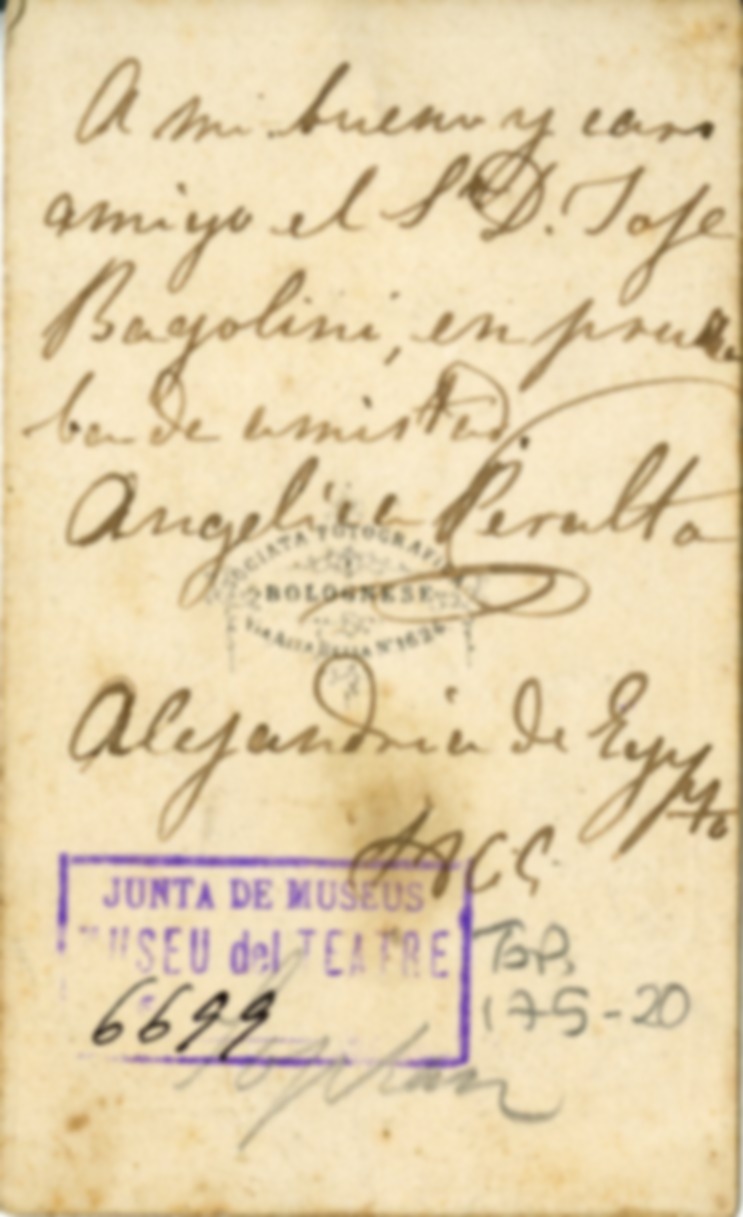 A mi bueno y caro
amigo el Sr. D. Jose
Bagolini, en prue
ba de amistad.
Angelica Peralta
SOCIATA FOTOGRAFI
BOLOGNESE
Alejandria de Egypto
JUNTA DE MUSEUS
MUSEU del TEATRE
6699
Top.
175-20